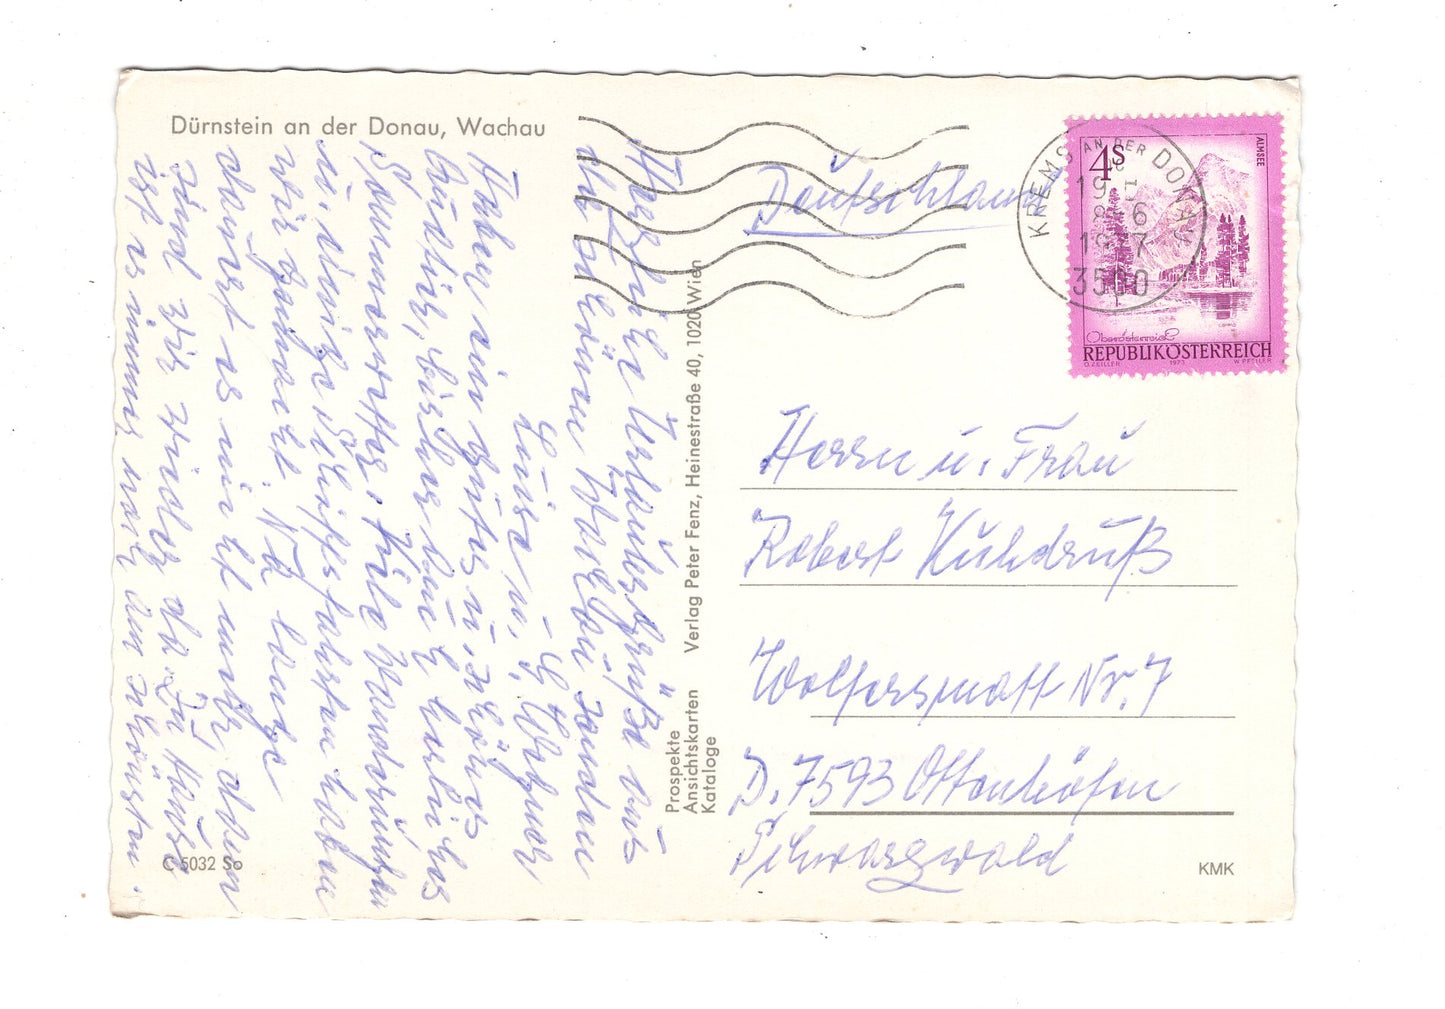 Dürnstein an der Donau, Wachau
Herzliche Urlaubsgrüße aus
der schönen Wachau senden
Luise u.
Haben ein gutes u. schönes
Quartier, bisher auch herliches
Sommerwetter, viele Wanderungen
u. einige Schiffsfahrten haben
wir gemacht. Nächste
dauert es nicht mehr dann
sind wir wieder zu Hause
ist es immer noch am schönsten.
C 5032 So
Prospekte
Ansichtskarten
Kataloge
Verlag Peter Fenz, Heinestraße 40, 1020 Wien
Deutschland
KREMS AN DER DONAU
19
3500
4S
ALMSEE
Oberösterreich
REPUBLIK ÖSTERREICH
O. ZEILLER 1973 W. PFEILER
Herrn u. Frau
Robert
Wolfersmatt Nr. 7
D. 7593 Ottenhöfen
Schwarzwald
KMK